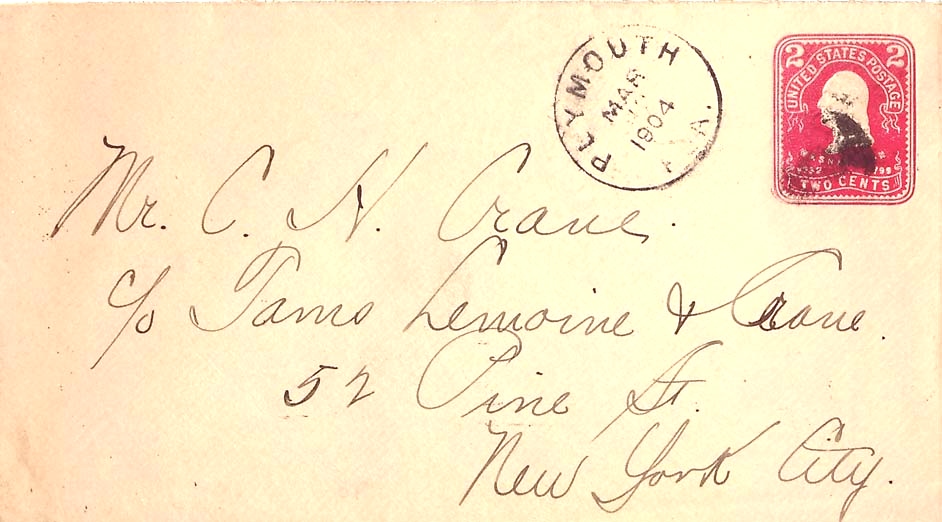 PLYMOUTH
MAR
1904
2 2
UNITED STATES POSTAGE
TWO CENTS
Mr. C. H. Crane.
c/o Tams Lemoine & Crane
52 Pine St.
New York City.